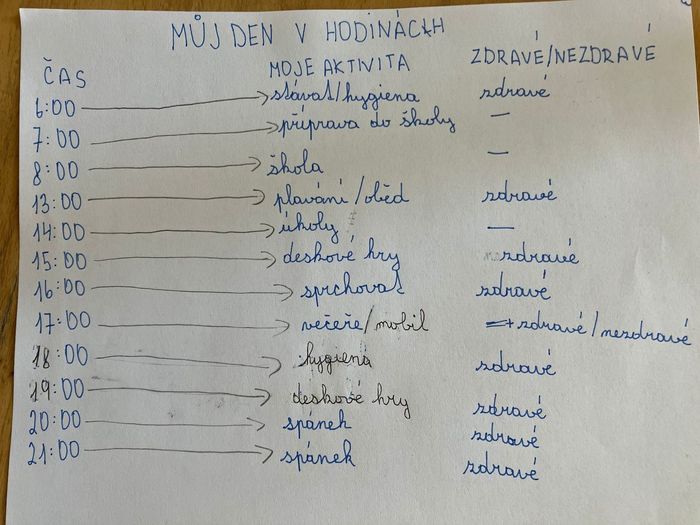 MŮJ DEN V HODINÁCH
ČAS MOJE AKTIVITA ZDRAVÉ/NEZDRAVÉ
6:00 → stávat/hygiena zdravé
7:00 → příprava do školy —
8:00 → škola —
13:00 → plavání/oběd zdravé
14:00 → úkoly —
15:00 → deskové hry zdravé
16:00 → sprchovat zdravé
17:00 → večeře/mobil + zdravé/nezdravé
18:00 → hygiena zdravé
19:00 → deskové hry zdravé
20:00 → spánek zdravé
21:00 → spánek zdravé